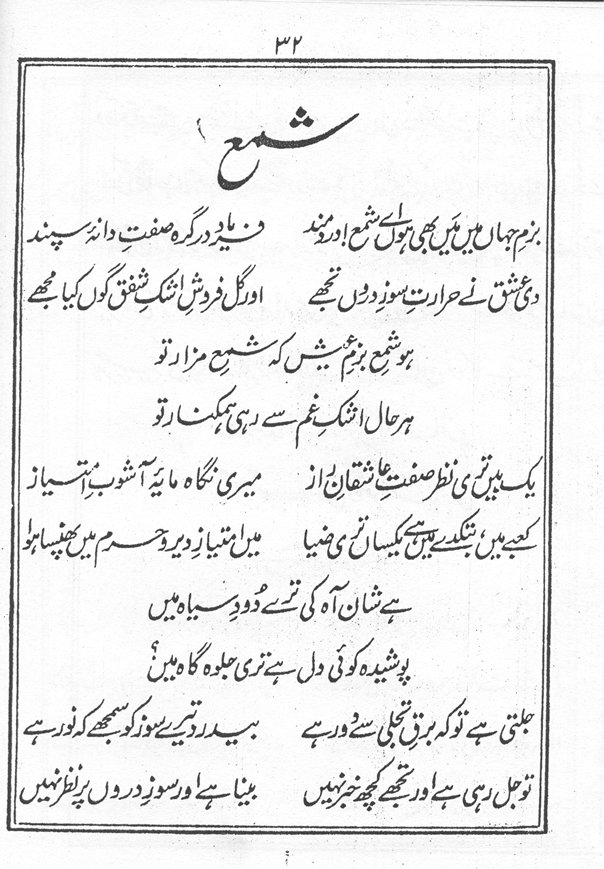 ۳۲
شمع
بزمِ جہاں میں مَیں بھی ہوں اے شمع! دردمند فریاد در گرہ صفتِ دانۂ سپند
دی عشق نے حرارتِ سوزِ دروں تجھے اور گل فروشِ اشکِ شفق گوں کیا مجھے
ہو شمعِ بزمِ عیش کہ شمعِ مزار تو
ہر حال اشکِ غم سے رہی ہمکنار تو
یک بیں تری نظر صفتِ عاشقانِ راز میری نگاہ مایۂ آشوبِ امتیاز
کعبے میں، بتکدے میں ہے یکساں تری ضیا میں امتیازِ دیر و حرم میں پھنسا ہوا
ہے شان آہ کی ترے دُودِ سیاہ میں
پوشیدہ کوئی دل ہے تری جلوہ گاہ میں؟
جلتی ہے تو کہ برقِ تجلی سے دور ہے بیدرد تیرے سوز کو سمجھے کہ نور ہے
تو جل رہی ہے اور تجھے کچھ خبر نہیں بینا ہے اور سوزِ دروں پر نظر نہیں